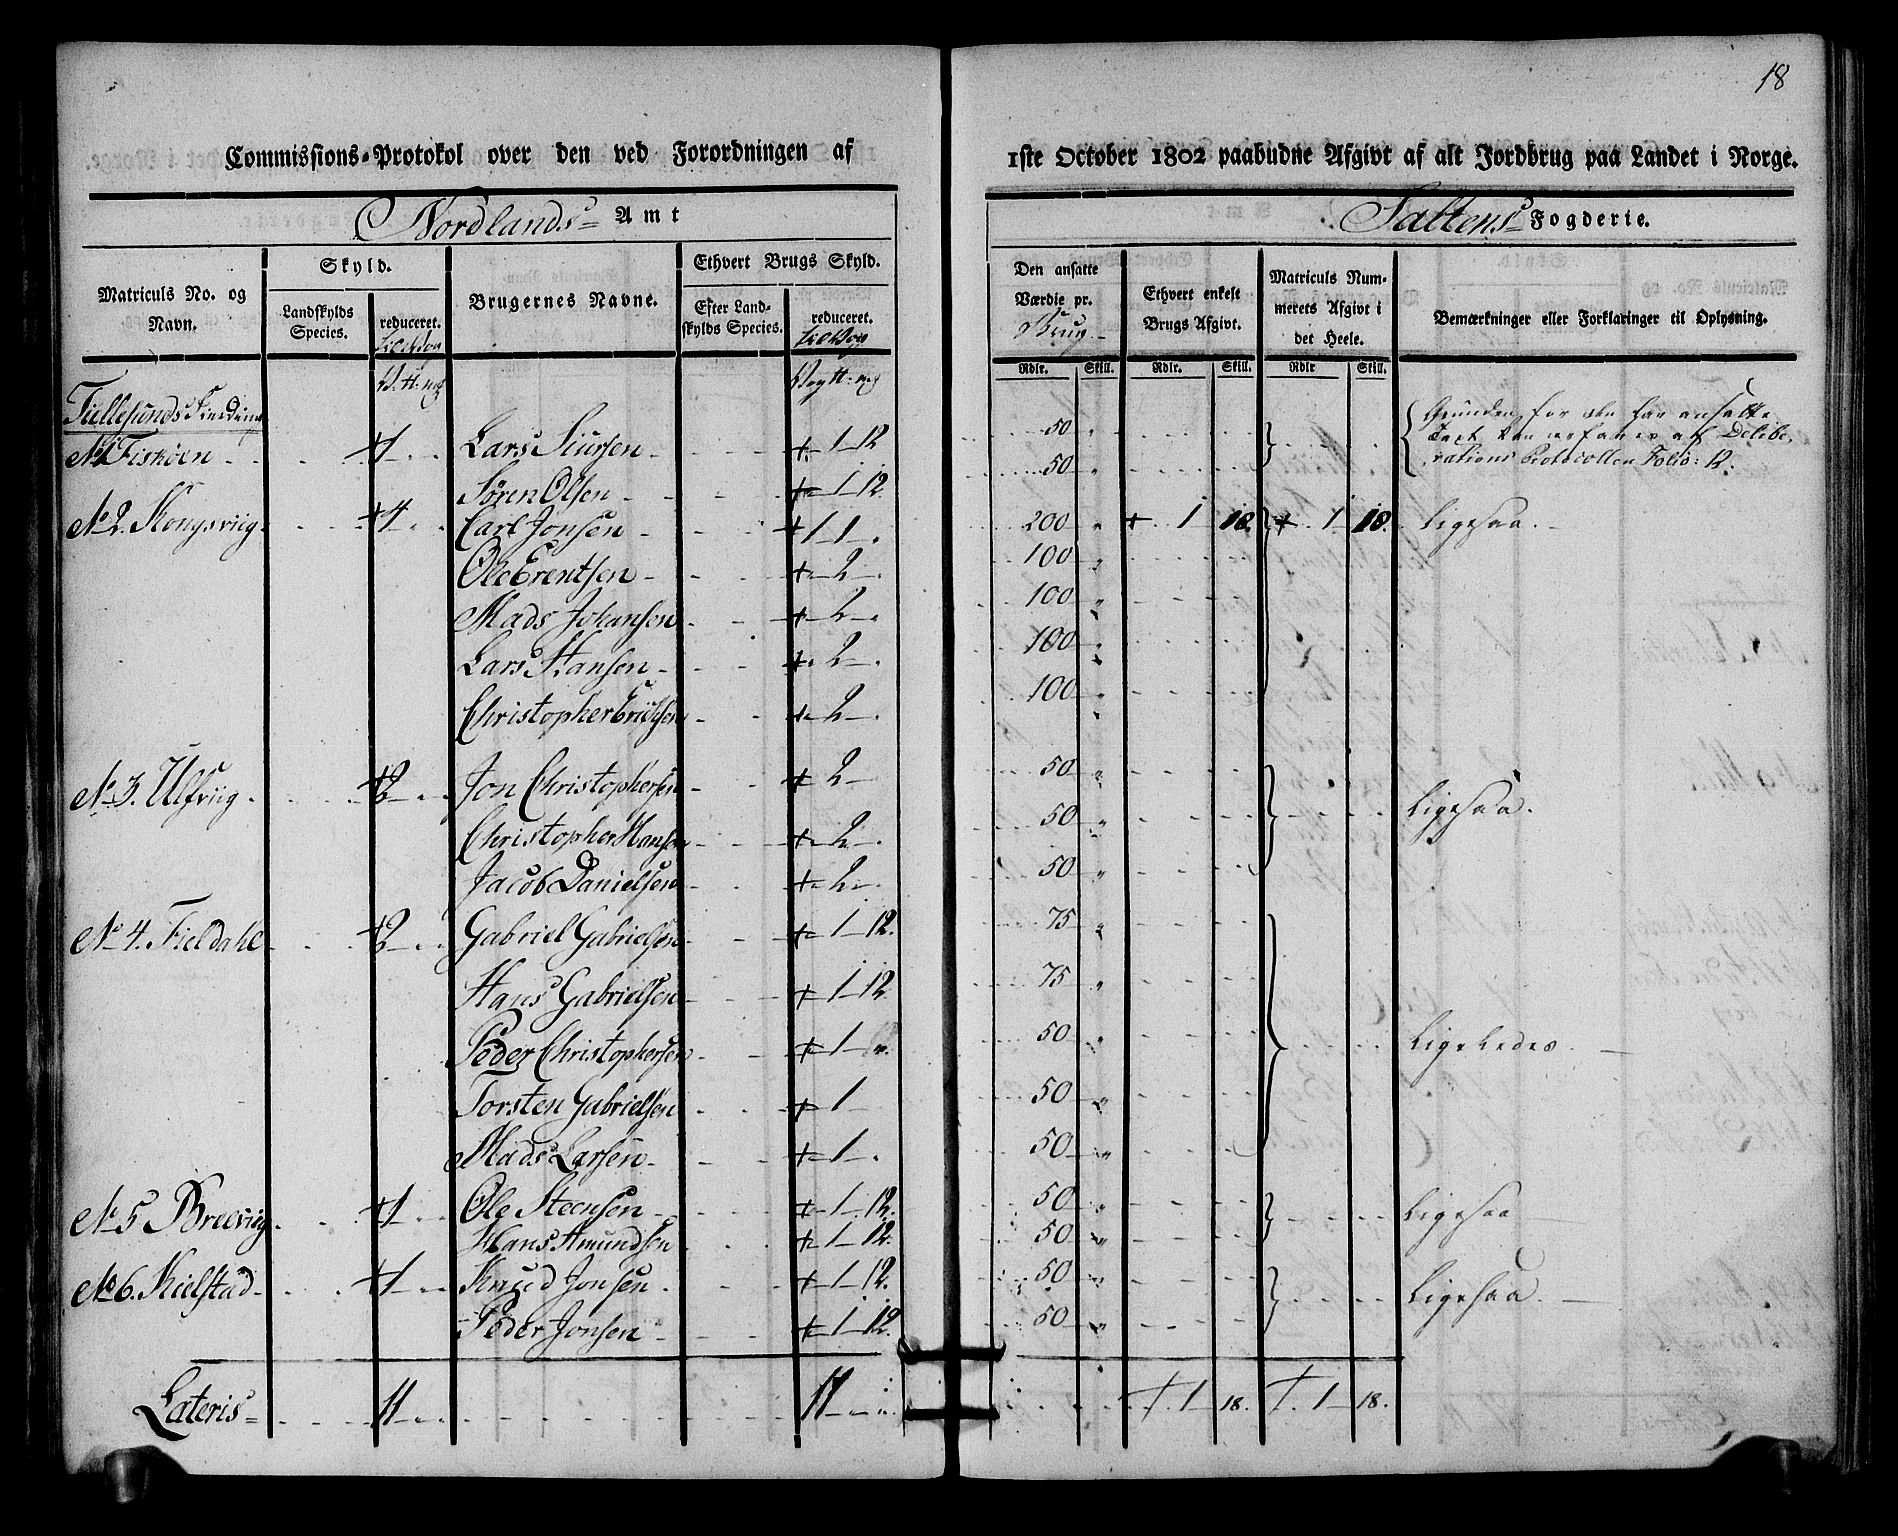 18
Commissions-Protokol over den ved Forordningen af 1ste October 1802 paabudne Afgivt af alt Jordbrug paa Landet i Norge.
Nordlands Amt
Saltens Fogderie.
Matriculs No. og Navn.
Skyld.
Landskylds Species.
reduceret.
Brugernes Navne.
Ethvert Brugs Skyld.
Efter Landskylds Species.
reduceret.
Den ansatte Værdie pr. Brug
Ethvert enkelt Brugs Afgivt.
Matriculs Nummerets Afgivt i det Heele.
Bemærkninger eller Forklaringer til Oplysning.
Rdlr. Skill. Rdlr. Skill. Rdlr Skill.
Tiellesunds Fierding
No 1 Fiskøen 1 Lars Siursen 1 12 50
Grunden for den her ansatte Taxt kan erfares af Deliberations Protocollen Folio: 12.
Sören Olsen 1 12 50
No 2. Kongsviig 4 Carl Jonsen 1 1 200 + 1 18. + 1 18. Ligesaa.
Ole Erentsen 2 100
Mads Johansen 2 100
Lars Hansen 2 100
Christopher Erichsen 2 100
No 3. Ulfviig 2 Jon Christophersen 2 50 Ligesaa.
Christopher Hansen 2 50
Jacob Danielsen 2 50
No 4. Fieldahl 2 Gabriel Gabrielsen 1 12. 75
Hans Gabrielsen 1 12 75
Peder Christophersen 1 50 Ligeledes
Torsten Gabrielsen 1 50
Mads Larsen 1 50
No 5 Breeviig 1 Ole Steensen 1 12. 50 Ligesaa
Hans Amundsen 1 12. 50
No 6. Kielstad 1 Knud Jonsen 1 12. 50 Ligesaa
Peder Jonsen 1 12. 50
Lateris 11 11 + 1 18. + 1 18.